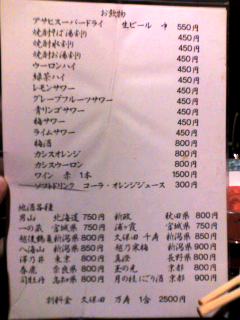 お飲物
アサヒスーパードライ 生ビール 中 550円
焼酎そば湯割り 450円
焼酎水割り 450円
焼酎お湯割り 450円
ウーロンハイ 450円
緑茶ハイ 450円
レモンサワー 450円
グレープフルーツサワー 450円
青リンゴサワー 450円
梅サワー 450円
ライムサワー 450円
梅酒 800円
カシスオレンジ 800円
カシスウーロン 800円
ワイン 赤 1本 1500円
ソフトドリンク コーラ・オレンジジュース 300円
地酒各種
男山 北海道 750円 新政 秋田県 800円
一の蔵 宮城県 750円 浦ヶ霞 宮城県 850円
越後鶴亀 新潟県 850円 久保田 千寿 新潟県 750円
八海山 新潟県 850円 越乃寒梅 新潟県 900円
澤乃井 東京 800円 真澄 長野県 800円
春鹿 奈良県 800円 玉の光 京都 800円
司牡丹 高知県 800円 月の桂にごり酒 京都 900円
別料金 久保田 万寿 1合 2500円